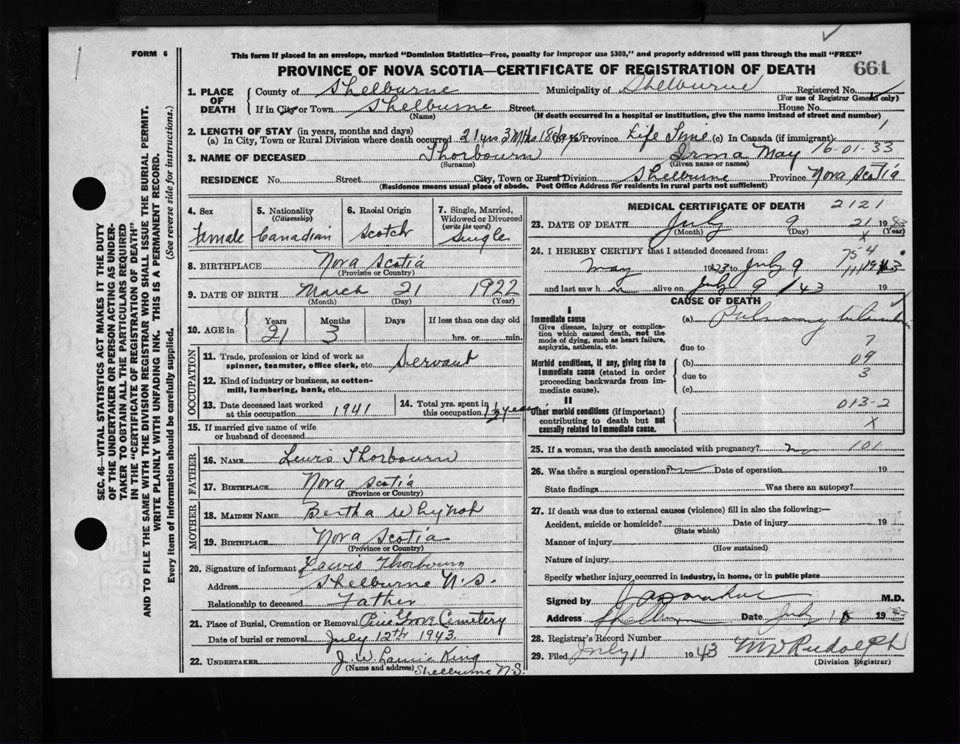 FORM 6
This form if placed in an envelope, marked "Dominion Statistics—Free, penalty for improper use $300," and properly addressed will pass through the mail "FREE"
PROVINCE OF NOVA SCOTIA—CERTIFICATE OF REGISTRATION OF DEATH
661
SEC. 46—VITAL STATISTICS ACT MAKES IT THE DUTY
OF THE UNDERTAKER OR PERSON ACTING AS UNDERTAKER
TO OBTAIN ALL THE PARTICULARS REQUIRED
IN THE "CERTIFICATE OF REGISTRATION OF DEATH"
AND TO FILE THE SAME WITH THE DIVISION REGISTRAR WHO SHALL ISSUE THE BURIAL PERMIT.
WRITE PLAINLY WITH UNFADING INK. THIS IS A PERMANENT RECORD.
Every item of information should be carefully supplied. (See reverse side for instructions.)
1. PLACE OF DEATH County of Shelburne Municipality of Shelburne Registered No.
(For use of Registrar General only)
If in City or Town Shelburne Street House No.
(Name) (If death occurred in a hospital or institution, give the name instead of street and number)
2. LENGTH OF STAY (in years, months and days)
(a) In City, Town or Rural Division where death occurred 21 yrs 3 Mths 18 days Province Life Time (c) In Canada (if immigrant) 1
3. NAME OF DECEASED Thorbourn Irma May 16-01-33
(Surname) (Given name or names)
RESIDENCE No. Street City, Town or Rural Division Shelburne Province Nova Scotia
(Residence means usual place of abode. Post Office Address for residents in rural parts not sufficient)
4. Sex Female
5. Nationality (Citizenship) Canadian
6. Racial Origin Scotch
7. Single, Married, Widowed or Divorced (write the word) Single
8. BIRTHPLACE Nova Scotia
(Province or Country)
9. DATE OF BIRTH March 21 1922
(Month) (Day) (Year)
10. AGE in Years Months Days If less than one day old
21 3 hrs. or min.
OCCUPATION
11. Trade, profession or kind of work as spinner, teamster, office clerk, etc. Servant
12. Kind of industry or business, as cotton-mill, lumbering, bank, etc.
13. Date deceased last worked at this occupation 1941
14. Total yrs. spent in this occupation 1½ years
15. If married give name of wife or husband of deceased
FATHER
16. NAME Lewis Thorbourn
17. BIRTHPLACE Nova Scotia
(Province or Country)
MOTHER
18. MAIDEN NAME Bertha Whynot
19. BIRTHPLACE Nova Scotia
(Province or Country)
20. Signature of informant Lewis Thorbourn
Address Shelburne N.S.
Relationship to deceased Father
21. Place of Burial, Cremation or Removal Pine Grove Cemetery
Date of burial or removal July 12th 1943
22. UNDERTAKER J. W. Laurie King
(Name and address) Shelburne N.S.
MEDICAL CERTIFICATE OF DEATH 2121
23. DATE OF DEATH July 9 21
(Month) (Day) (Year)
24. I HEREBY CERTIFY that I attended deceased from:
May to July 9
and last saw h alive on July 9/43 19
CAUSE OF DEATH
I
Immediate cause
Give disease, injury or complication which caused death, not the mode of dying, such as heart failure, asphyxia, asthenia, etc.
(a) Pulmonary
due to 7
Morbid conditions, if any, giving rise to immediate cause (stated in order proceeding backwards from immediate cause).
(b) 09
due to 3
(c)
II
Other morbid conditions (if important) contributing to death but not causally related to immediate cause.
013-2
X
25. If a woman, was the death associated with pregnancy? no 101
26. Was there a surgical operation Date of operation 19
State findings Was there an autopsy?
27. If death was due to external causes (violence) fill in also the following:—
Accident, suicide or homicide? Date of injury 19
(State which)
Manner of injury
(How sustained)
Nature of injury
Specify whether injury occurred in industry, in home, or in public place
Signed by M.D.
Address Shelburne Date July 19
28. Registrar's Record Number
29. Filed July 11 1943 Rudolph
(Division Registrar)